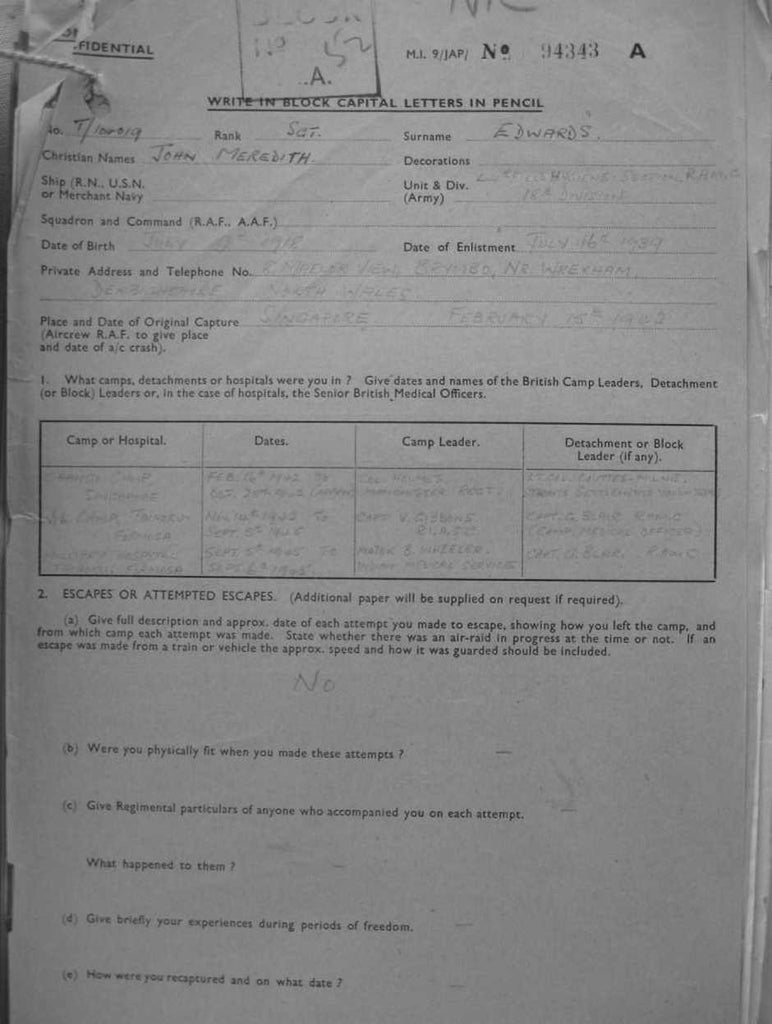 FIDENTIAL
M.I. 9/JAP/ No 94343 A
A.
WRITE IN BLOCK CAPITAL LETTERS IN PENCIL
No. Rank SGT. Surname EDWARDS.
Christian Names JOHN MEREDITH. Decorations
Ship (R.N., U.S.N. or Merchant Navy Unit & Div. (Army) R.A.M.C 18th DIVISION
Squadron and Command (R.A.F., A.A.F.)
Date of Birth JULY 1918 Date of Enlistment JULY 16th 1939
Private Address and Telephone No. VIEW, BRYMBO, NR. WREXHAM
DENBIGHSHIRE NORTH WALES
Place and Date of Original Capture SINGAPORE FEBRUARY 15th 1942
(Aircrew R.A.F. to give place
and date of a/c crash).
1. What camps, detachments or hospitals were you in ? Give dates and names of the British Camp Leaders, Detachment
(or Block) Leaders or, in the case of hospitals, the Senior British Medical Officers.
Camp or Hospital. Dates. Camp Leader. Detachment or Block
Leader (if any).
CHANGI CAMP FEB. 16th 1942 TO COL HOLMES
SINGAPORE MANCHESTER REGT. STRAITS SETTLEMENTS VOLUNTEERS
CAMP, NOV. 14th 1942 TO CAPT V. GIBBONS CAPT. G. BLAIR RAMC
FORMOSA SEPT. 5th 1945 R.I.A.S.C (CAMP MEDICAL OFFICER)
MILITARY HOSPITAL SEPT. 5th 1945 TO MAJOR B. WHEELER. CAPT. G. BLAIR. RAMC
FORMOSA SEPT. 6th 1945. INDIAN MEDICAL SERVICES
2. ESCAPES OR ATTEMPTED ESCAPES. (Additional paper will be supplied on request if required).
(a) Give full description and approx. date of each attempt you made to escape, showing how you left the camp, and
from which camp each attempt was made. State whether there was an air-raid in progress at the time or not. If an
escape was made from a train or vehicle the approx. speed and how it was guarded should be included.
No
(b) Were you physically fit when you made these attempts ? —
(c) Give Regimental particulars of anyone who accompanied you on each attempt. —
What happened to them ? —
(d) Give briefly your experiences during periods of freedom. —
(e) How were you recaptured and on what date ? —